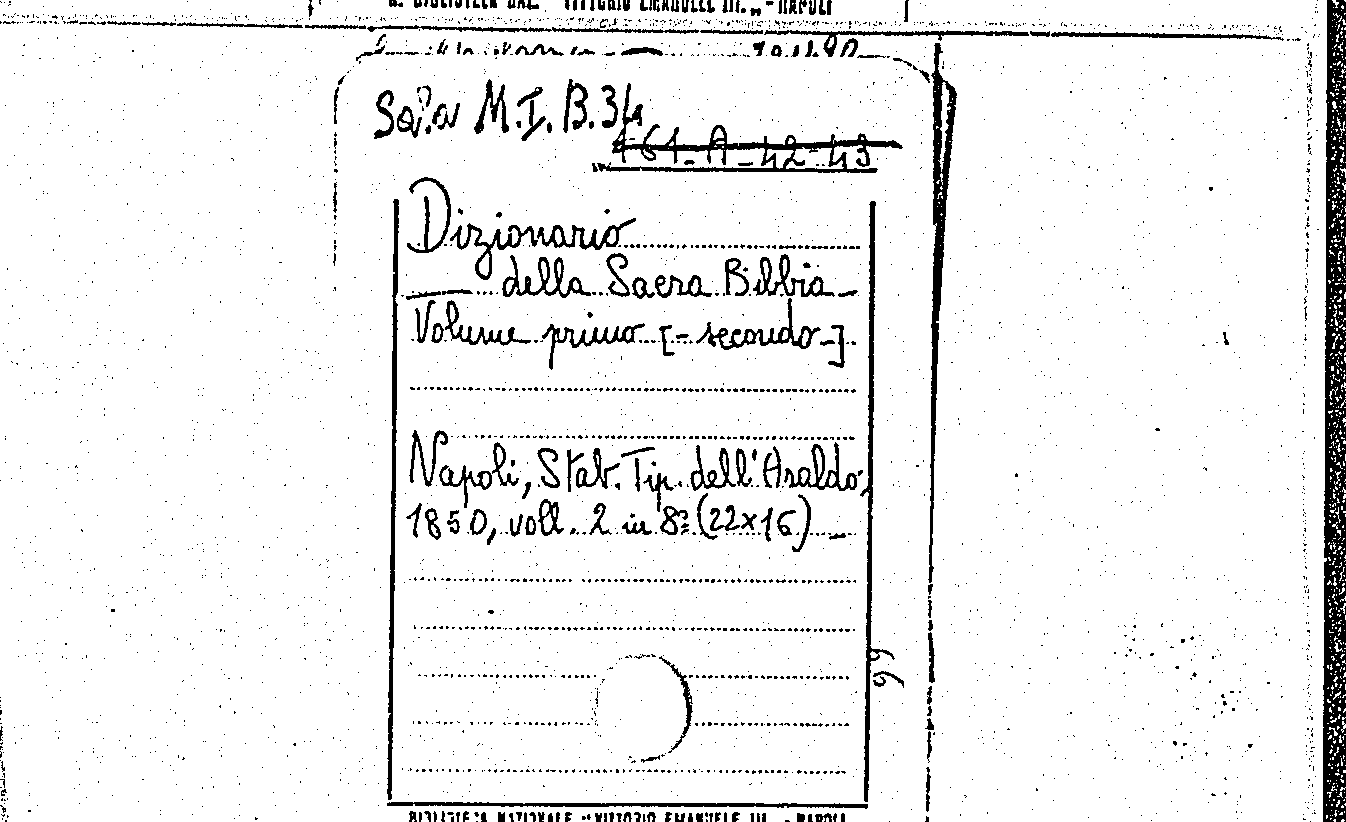 R. BIBLIOTECA NAZ. "VITTORIO EMANUELE III. „ - NAPOLI
Sala M.I. B.34
461-A-42-43
Dizionario
della Sacra Bibbia_
Volume primo [- secondo-]
Napoli, Stab. Tip. dell'Araldo,
1850, voll. 2 in 8º (22x16)_
99
BIBLIOTECA NAZIONALE "VITTORIO EMANUELE III„ - NAPOLI